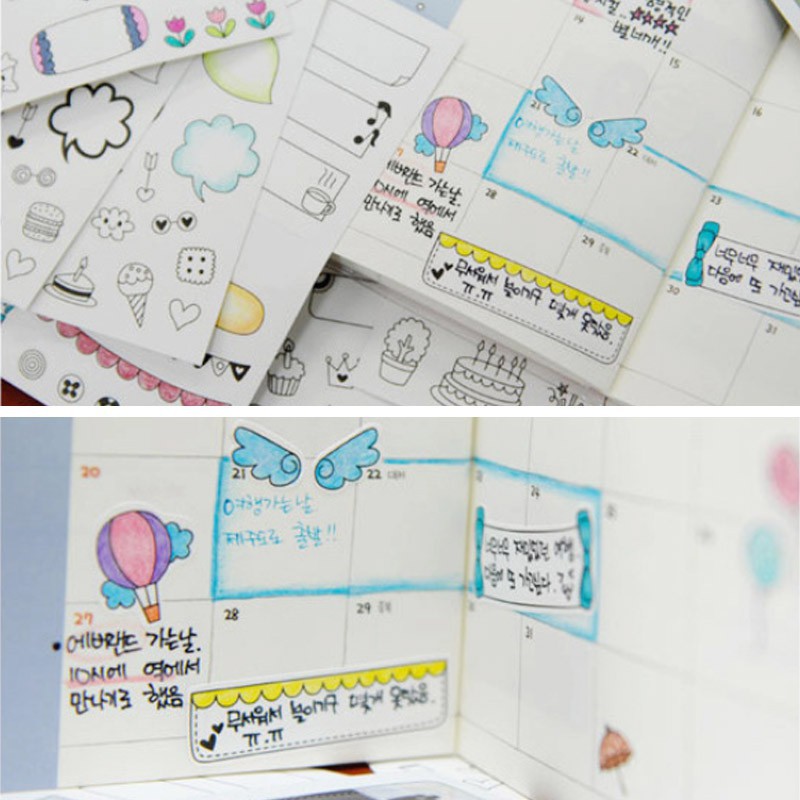 별 너개!!
14
15
16
21
여행가는날
제주도로 출발!!
22 대서
23
27
에버랜드 가는날.
10시에 역에서
만나기로 했음
28
29 중복
무서워서 놀이기구 몇개 못탔음.
ㅠ.ㅠ
너무너무
다음에 또
30
31
20
21
22 대서
여행가는날
제주도로 출발!!
24
너무너무 재밌었던 여행
다음에 또 가고싶다.
27
에버랜드 가는날.
10시에 역에서
만나기로 했음
28
29 중복
31
무서워서 놀이기구 몇개 못탔음.
ㅠ.ㅠ